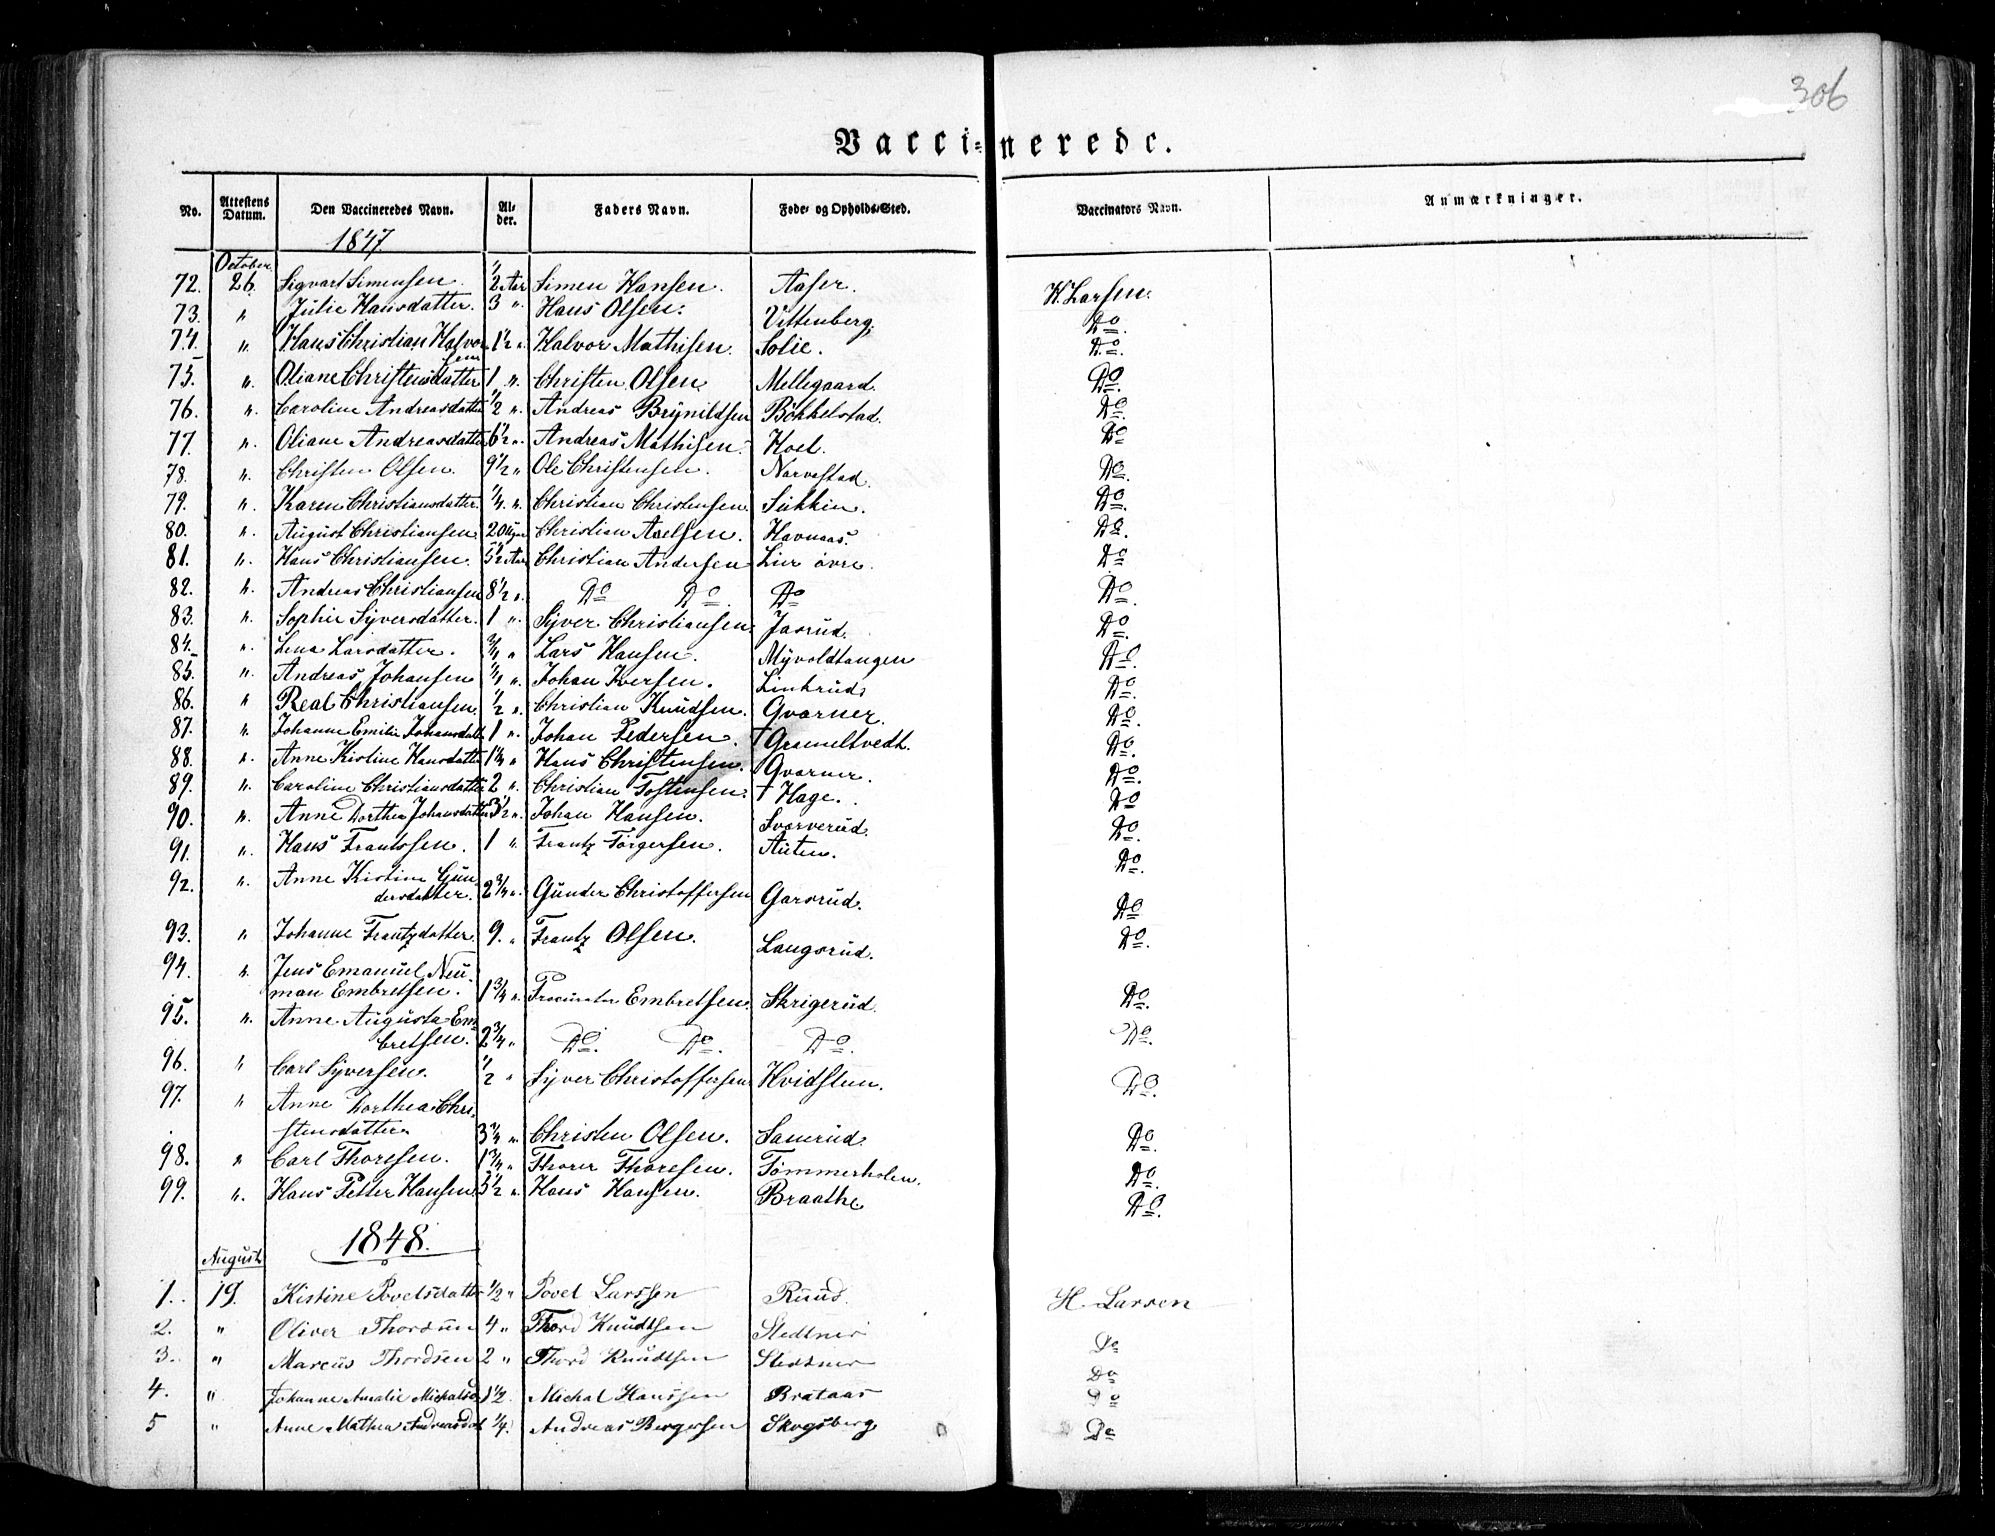 306
Vacci-nerede.
No. Attestens Datum. Den Vaccineredes Navn. Al-der. Faders Navn. Føde- og Opholds-Sted. Vaccinators Navn. Anmærkninger.
1847.
October
72. 26. Sigvart Simensen. 1/2 Aar Simen Hansen. Aaser. H. Larsen.
73. " Julie Hansdatter. 3 ". Hans Olsen. Vittenberg. Do.
74. ". Hans Christian Halvor- 1 1/2 ". Halvor Mathisen. Solie. Do.
sen
75. ". Oliane Christensdatter 1 ". Christen Olsen Mellegaard. Do.
76. ". Caroline Andreasdatter 1/2 ". Andreas Brynildsen Bökkelstad. Do.
77. ". Oliane Andreasdatter 6 1/2 ". Andreas Mathisen. Hoel. Do
78. ". Christen Olsen. 9 1/2 " Ole Christensen. Narvestad. Do.
79. ". Karen Christiansdatter. 1/4 ". Christian Christensen Sukkin. Do.
80. ". August Christiansen. 20 Uger Christian Axelsen. Havnaas. Do.
81. ". Hans Christiansen. 5 1/2 Aar Christian Andersen Lier övre. Do
82. ". Andreas Christiansen 8 1/2 ". Do Do. Do Do.
83. ". Sophie Syversdatter. 1 ". Syver Christiansen. Jasrud. Do.
84. ". Lena Larsdatter. 3/4 " Lars Hansen. Myvoldtangen Do.
85. ". Andreas Johansen 1/4 ". Johan Iversen. Linkruds Do.
86. " Real Christiansen. 1/2 ". Christian Knudsen. Qvarner. Do.
87. ". Johanne Emilie Johansdatt 1 ". Johan Pedersen. † Grameltvedt. Do.
88. ". Anne Kistine Hansdatter 1 1/4 " Hans Christensen. Qvarner. Do.
89. ". Caroline Christiansdatter 2 ". Christian Tostensen. † Hage. Do
90. ". Anne Dorthea Johansdatter 3 1/2 ". Johan Hansen. Svarverud. Do.
91. ". Hans Frantssen. 1 ". Frantz Törgersen. Auten. Do.
92. ". Anne Kistine Gun-
dersdatter. 2 3/4 ". Gunder Christoffersen Garsrud. Do
93. " Johanne Frantzdatter. 9. " Frantz Olsen. Langsrud. Do.
94. ". Jens Emanuel Neu-
man Embretsen. 1 3/4 ". Procurator Embretsen. Skrigerud. Do.
95. ". Anne Augusta Em-
bretsen. 2 3/4 " Do. Do. Do. Do.
96. " Carl Syversen. 1/2 " Syver Christoffersen Hvidsten. Do.
97. " Anne Dorthea Chri-
stensdatter. 3 3/4 ". Christen Olsen. Sanerud. Do.
98. " Carl Thoresen. 1 3/4 " Thorer Thoresen. Tömmerholen. Do.
99. ". Hans Petter Hansen 3 1/2 ". Hans Hansen. Braathe Do.
1848.
August
1. 19. Kistine Povelsdatter 1/2 " Povel Larssen Ruud. H. Larsen
2. " Oliver Thordsen 4 " Thord Knudtsen Stedtner Do
3. " Marcus Thordsen 2 " Thord Knudtsen Stedtner Do
4. " Johanne Amalie Michalsd 1 1/2 Michal Hanssen Brataas Do
5 " Anne Mathea Andreasdat 1/4. Andreas Bergersen Skogsberg Do